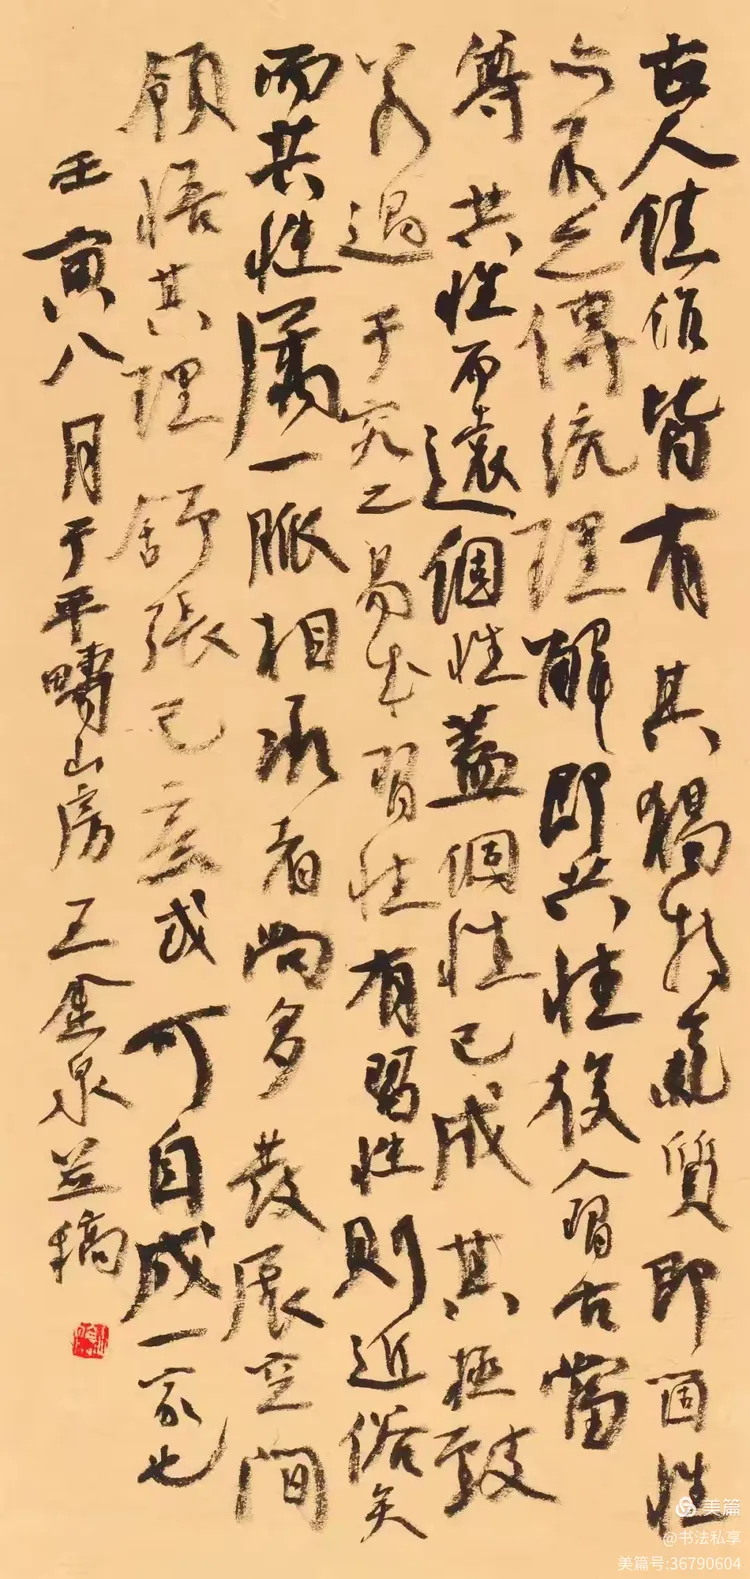 古人佳作皆有其獨特氣質即個性
亦有之傳統理解即共性後人習古當
尊共性而遠個性蓋個性已成其極致
若過于究之易成習性有習性則近俗矣
而共性屬一脈相承者尚多發展空間
領悟其理舒張己意或可自成一家也
壬寅八月于平疇山房王金泉並稿
美篇
@书法私享
美篇号:36790604